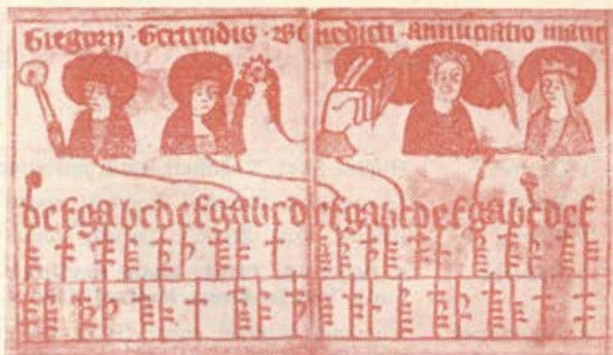 Gregorij · Gertrudis · Benedicti · Annuciatio marie
defgabcdefgabcdefgabcdefgabcdef